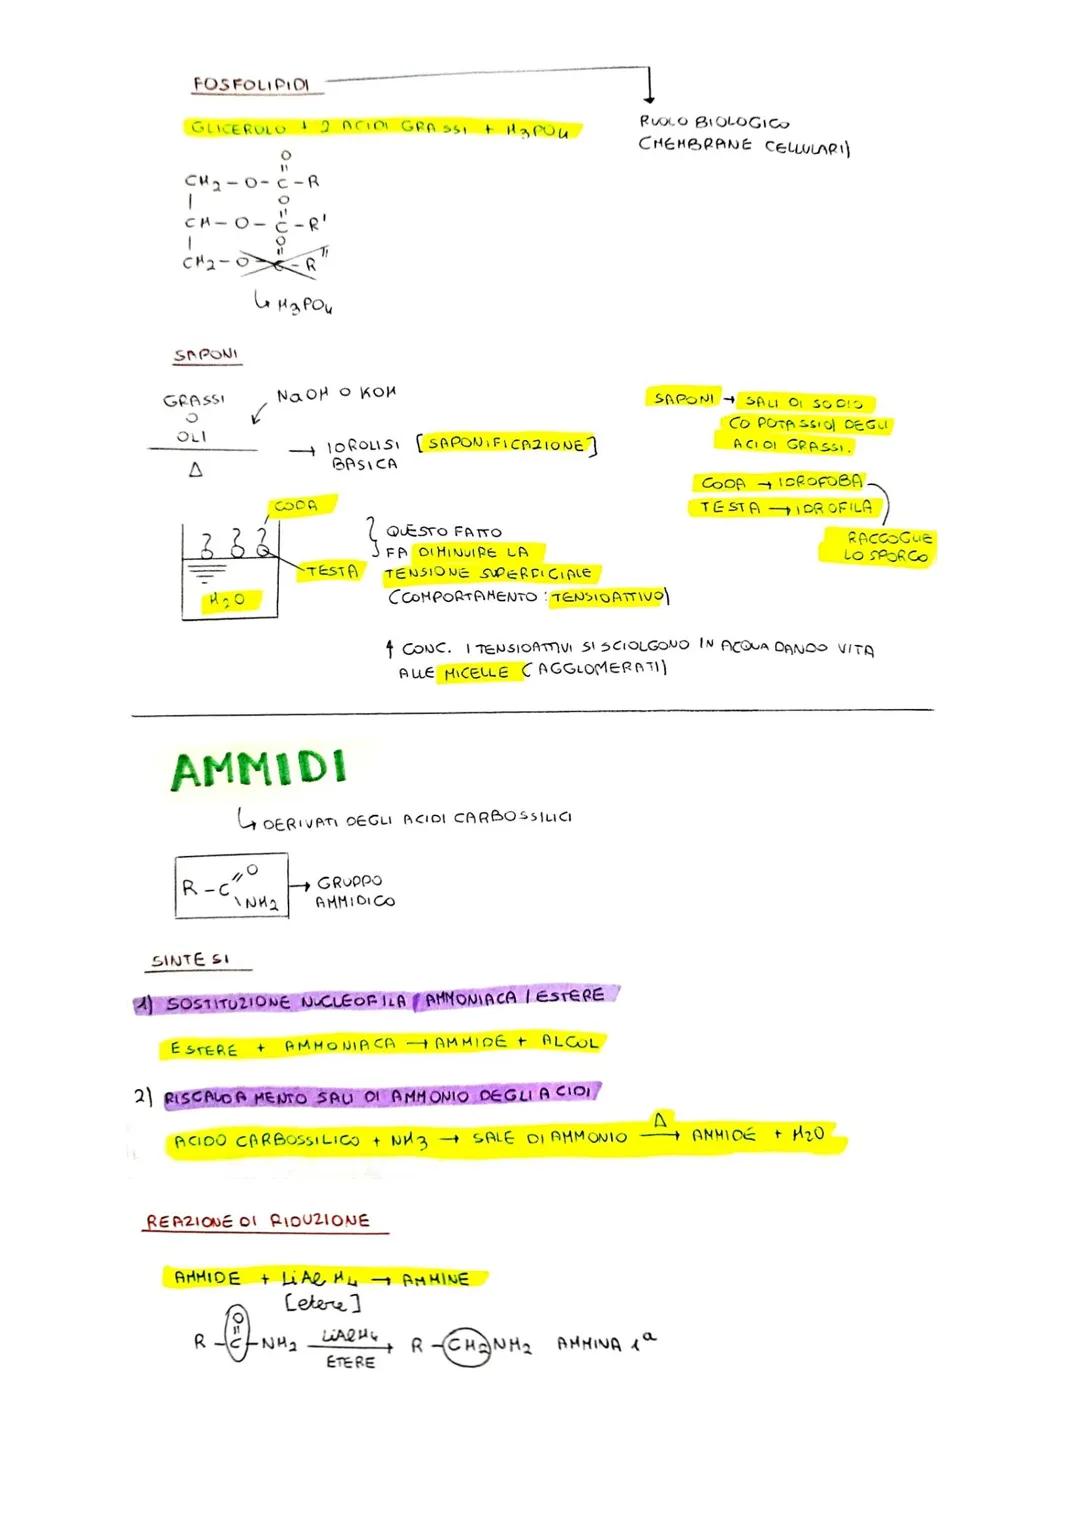 FOSFOLIPIDI
GLICEROLO + 2 ACIDI GRASSI + H3PO4
RUOLO BIOLOGICO
(MEMBRANE CELLULARI)
O
CH2-O-C-R
O
CH-O-C-R'
O
CH2-O-C-R"
↳ H3PO4
SAPONI
GRASSI
O
OLI
Δ
NaOH O KOH
→ IDROLISI [SAPONIFICAZIONE]
BASICA
SAPONI → SALI DI SODIO
(O POTASSIO) DEGLI
ACIDI GRASSI.
CODA → IDROFOBA
TESTA → IDROFILA
RACCOGLIE
LO SPORCO
CODA
TESTA
H2O
QUESTO FATTO
FA DIMINUIRE LA
TENSIONE SUPERFICIALE
(COMPORTAMENTO: TENSIOATTIVO)
↑ CONC. I TENSIOATTIVI SI SCIOLGONO IN ACQUA DANDO VITA
ALLE MICELLE (AGGLOMERATI)
AMMIDI
↳ DERIVATI DEGLI ACIDI CARBOSSILICI
O
R-C
NH2
→ GRUPPO
AMMIDICO
SINTESI
1) SOSTITUZIONE NUCLEOFILA (AMMONIACA/ESTERE
ESTERE + AMMONIACA → AMMIDE + ALCOL
2) RISCALDAMENTO SALI DI AMMONIO DEGLI ACIDI
ACIDO CARBOSSILICO + NH3 → SALE DI AMMONIO Δ→ AMMIDE + H2O
REAZIONE DI RIDUZIONE
AMMIDE + LiAlH4 → AMMINE
[etere]
O
R-C-NH2 LiAlH4→ R-CH2NH2 AMMINA 1ª
ETERE